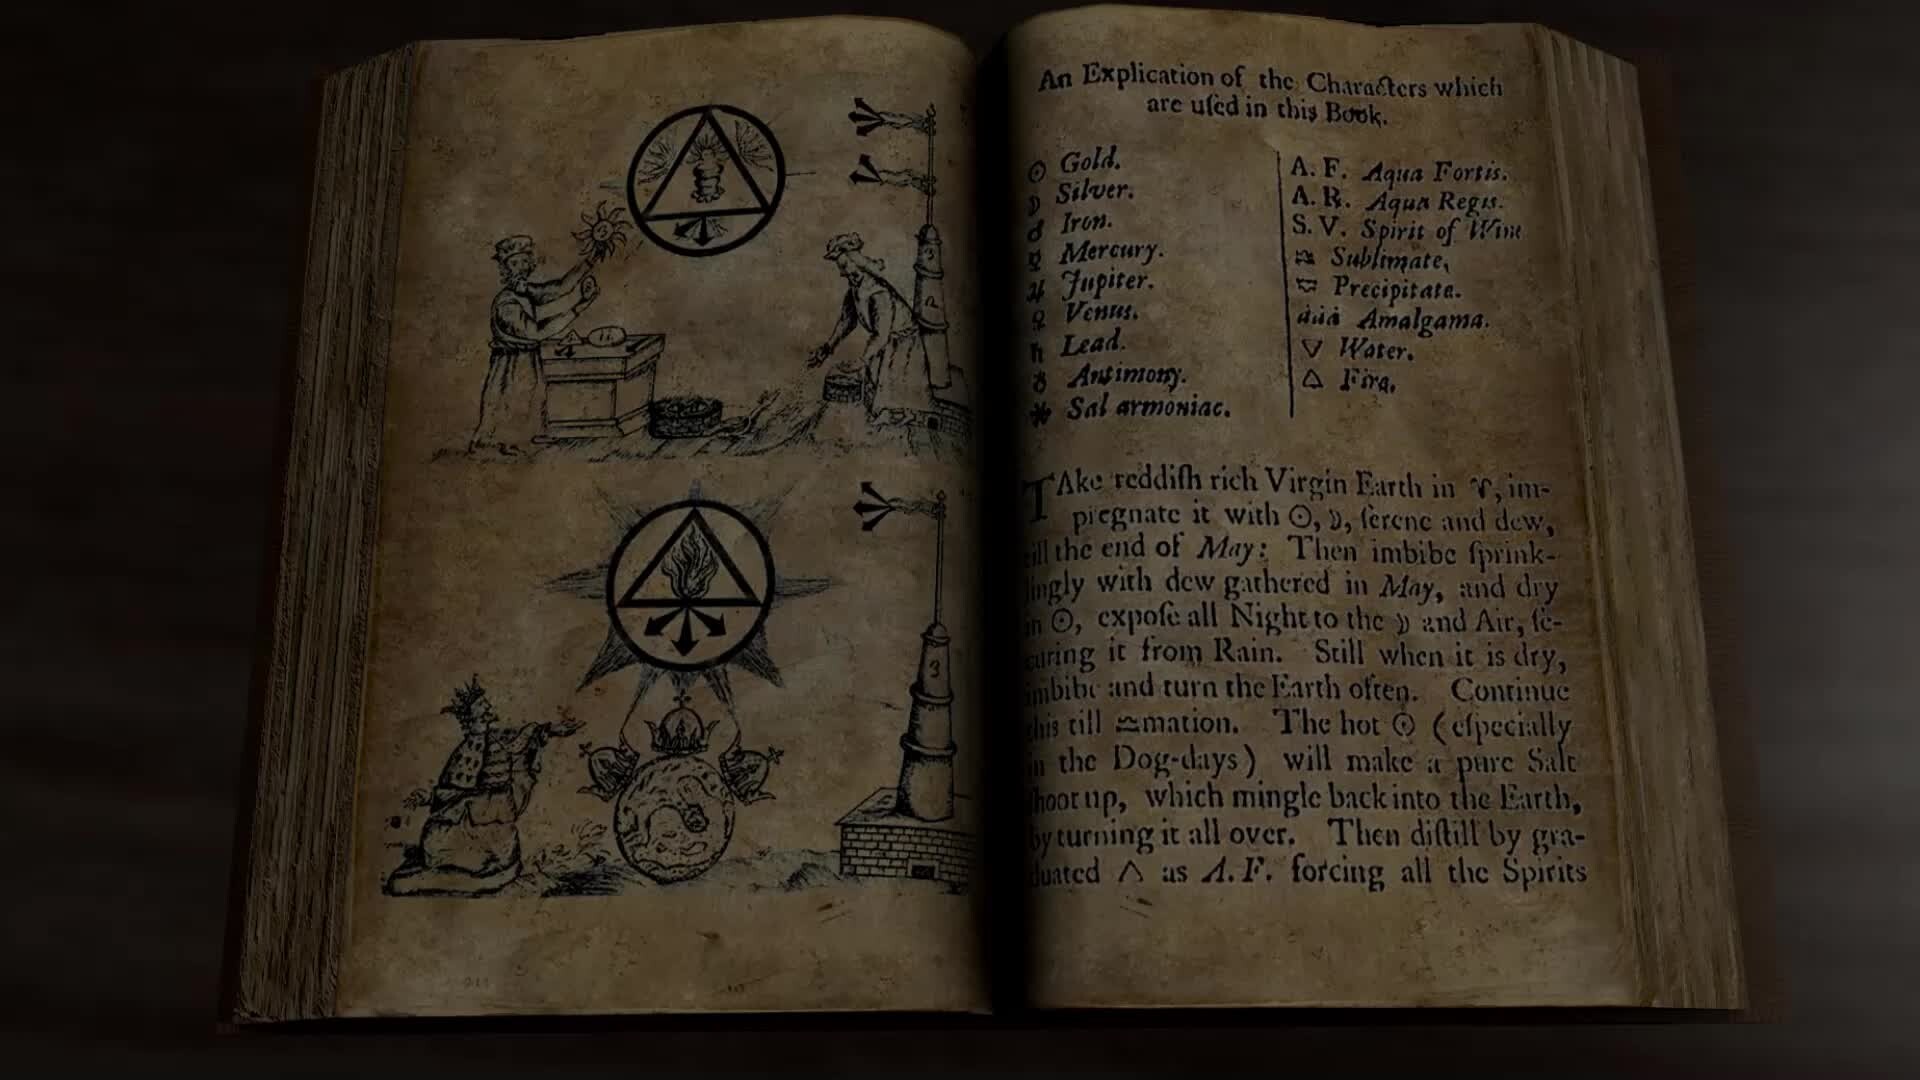 An Explication of the Characters which
are uſed in this Book.
☉ Gold.
☽ Silver.
♂ Iron.
☿ Mercury.
♃ Jupiter.
♀ Venus.
♄ Lead.
♁ Antimony.
✱ Sal armoniac.
A. F. Aqua Fortis.
A. R. Aqua Regis.
S. V. Spirit of Wine
♎ Sublimate,
Precipitate.
āāā Amalgama.
▽ Water.
△ Fire.
TAke reddiſh rich Virgin Earth in ♈, im-
pregnate it with ☉, ☽, ſerene and dew,
till the end of May: Then imbibe ſprink-
lingly with dew gathered in May, and dry
in ☉, expoſe all Night to the ☽ and Air, ſe-
curing it from Rain. Still when it is dry,
imbibe and turn the Earth often. Continue
this till ♎mation. The hot ☉ (eſpecially
in the Dog-days) will make a pure Salt
ſhoot up, which mingle back into the Earth,
by turning it all over. Then diſtill by gra-
duated △ as A. F. forcing all the Spirits
3
2
3